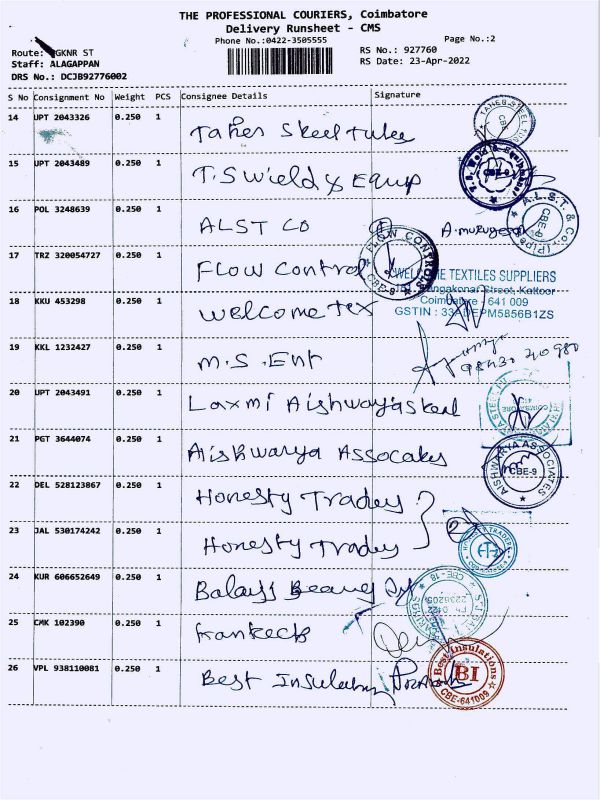 THE PROFESSIONAL COURIERS, Coimbatore
Delivery Runsheet - CMS
Phone No.:0422-3505555
Page No.:2
Route: GKNR ST
RS No.: 927760
Staff: ALAGAPPAN
RS Date: 23-Apr-2022
DRS No.: DCJB92776002
S No Consignment No Weight PCS Consignee Details Signature
14 UPT 2043326 0.250 1 Taher Steel Tubes
TAHER STEEL
15 UPT 2043489 0.250 1 T.S Wield & Equip
CBE-9
16 POL 3248639 0.250 1 ALST CO A.murugesan
A.L.S.T. & Co. (Pipe) CBE-9
17 TRZ 320054727 0.250 1 Flow Control
FLOW CONTROLS CBE-9
WELCOME TEXTILES SUPPLIERS
Street, Kattoor
Coimbatore 641 009
GSTIN : 33 PM5856B1ZS
18 KKU 453298 0.250 1 Welcome Tex
19 KKL 1232427 0.250 1 M.S. Ent
20 UPT 2043491 0.250 1 Laxmi Aishwarya Steel
21 PGT 3644074 0.250 1 Aishwarya Assocates
AISHWARYA ASSOCIATES CBE-9
22 DEL 528123867 0.250 1 Honesty Trades
23 JAL 530174242 0.250 1 Honesty Trades
2
24 KUR 606652649 0.250 1 Balaji Bearing
CBE-18
25 CMK 102390 0.250 1
26 VPL 938110081 0.250 1 Best Insulation
Best Insulations BI CBE-641009